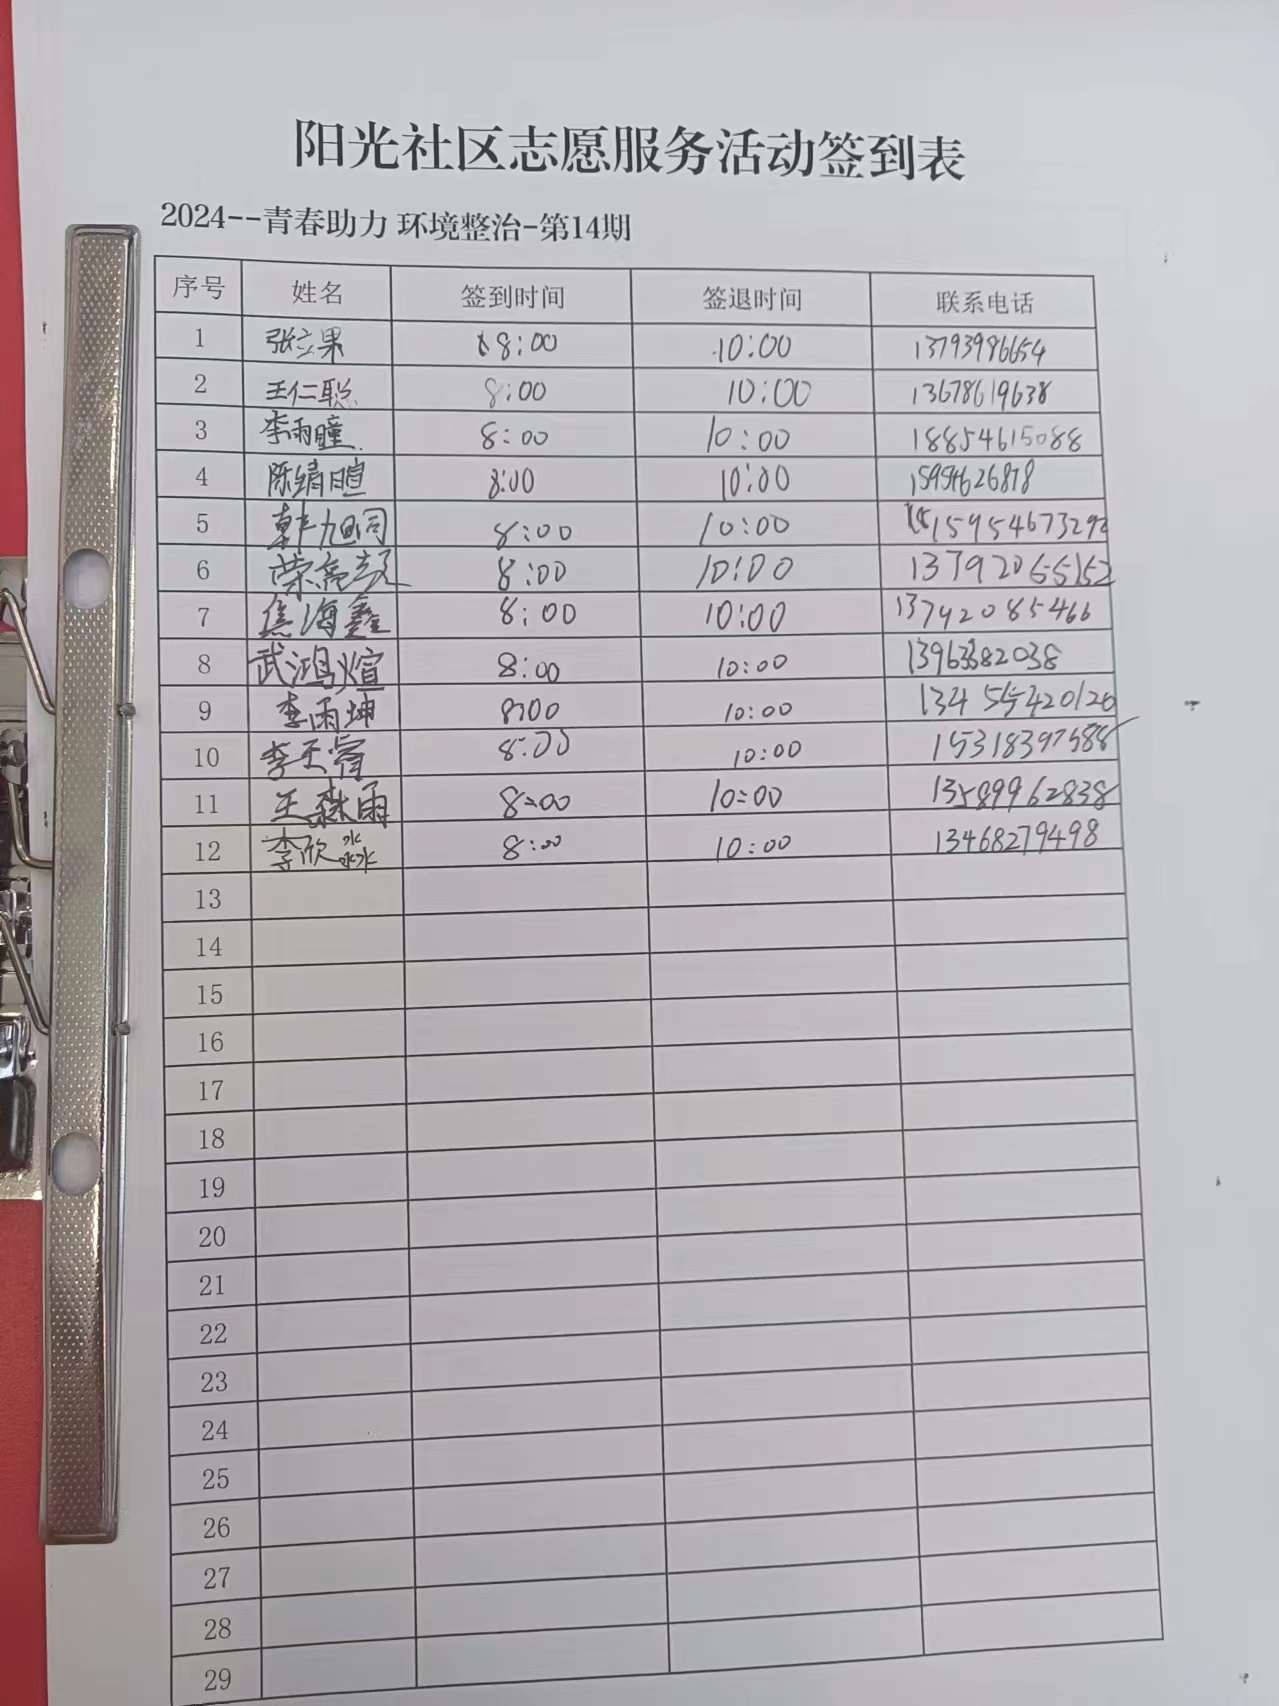 阳光社区志愿服务活动签到表
2024--青春助力 环境整治-第14期
序号 姓名 签到时间 签退时间 联系电话
1 张立果 8:00 10:00 13793986654
2 王仁聪 8:00 10:00 13678619638
3 李雨瞳 8:00 10:00 18854615088
4 陈绪暄 8:00 10:00
5 韩旭同 8:00 10:00 15954673292
6 8:00 10:00
7 焦海鑫 8:00 10:00 13742085466
8 武鸿煊 8:00 10:00
9 李雨坤 8:00 10:00
10 李天睿 8:00 10:00
11 王森雨 8:00 10:00 13589962838
12 李欣淼 8:00 10:00 13468279498
13
14
15
16
17
18
19
20
21
22
23
24
25
26
27
28
29